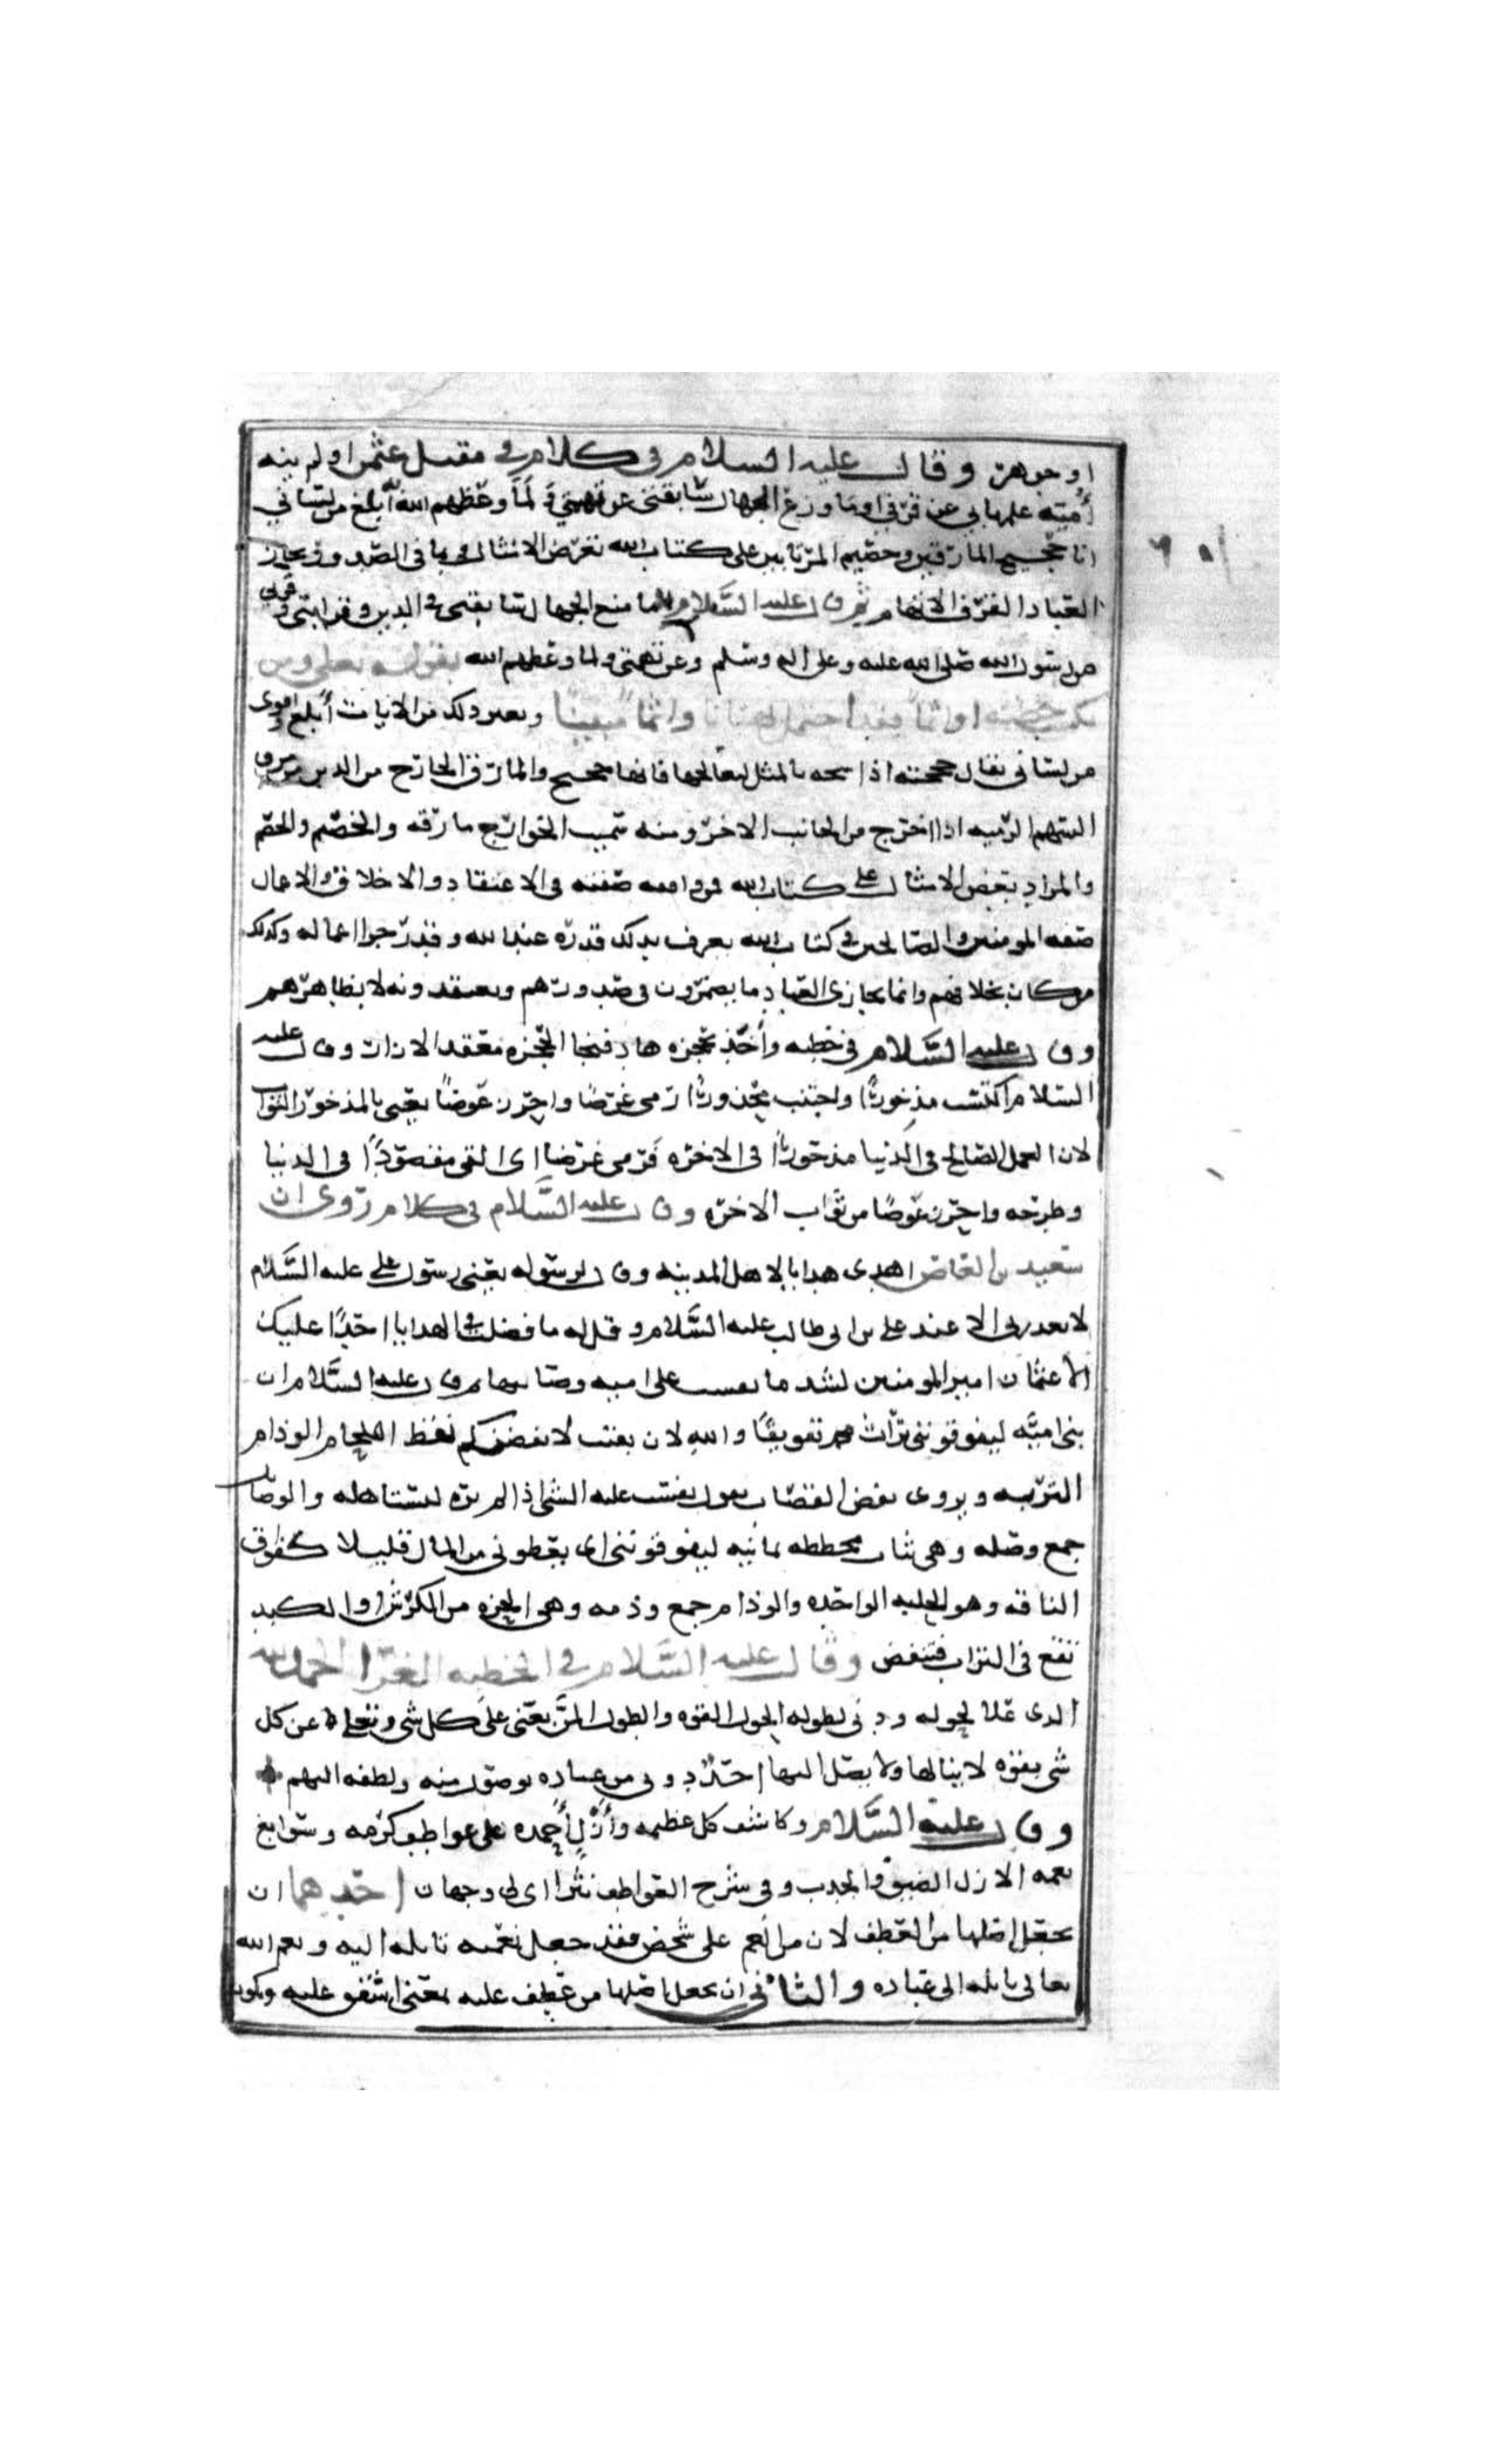 او جوهرة وقال عليه السلام في كلام في مقتل عثمن اولم ينه
أميّة علمها بي عن قرفي اوما وزع الجهال سابقتي عن تهمتي ولما وعظهم الله أبلغ من لساني
انا حجيج المارقين وخصيم المرتابين على كتاب الله تعرض الامثال وبما في الصدور تجازى
العباد القرف الاتهام ثم قال عليه السلام اما منع الجهال سابقتي في الدين وقرابتي وقربي
من رسول الله صلى الله عليه وعلى اله وسلم وعن تهمتي ولما وعظهم الله بقوله تعلى ومن
يكسب خطيئة او اثما فقد احتمل بهتانا واثما مبينا وبغير ذلك من الايات أبلغ واقوى
من لساني يقال حججته اذا شجه بالمثل ليعالجها فانها حجيج والمارق الخارج من الدين مروق
السهم الرميه اذا خرج من الجانب الاخر ومنه سميت الخوارج مارقه والخصيم والخصم
والمراد بعرض الامثال على كتاب الله من وافقه صفته في الاعتقاد والاخلاق والاعمال
صفه المومنين والصالحين في كتاب الله يعرف بذلك قدره عند الله وقدر جزا اعماله وكذلك
من كان بخلافهم وانما يجازى العباد ما يضمرون في صدورهم ويعتقدونه لا بظاهرهم
وقال عليه السلام في خطبه وأخذ بحجزه هاد فنجا الحجزه معقد الازار وقال عليه
السلام اكتسب مذخورا واجتنب محذورا رمى غرضا واحرز عوضا يعني بالمذخور الثواب
لان العمل الصالح في الدنيا مذخورا في الاخره فرمى غرضا اى القى مقصودا في الدنيا
وطرحه واحرز عوضا من ثواب الاخره وقال عليه السلام في كلام روى ان
سعيد بن العاص اهدى هدايا لاهل المدينه وقال لرسوله يعني رسول على عليه السلام
لا تعذرني الا عند على بن ابي طالب عليه السلام وقل له ما فضلت في الهدايا احدا عليك
الا عثمان امير المومنين لشد ما على اميه ثم قال عليه السلام ان
بني اميه ليفوقونني تراث محمد تفويقا والله لان بقيت لانفضنكم نفض اللحام الوذام
التربه ويروى نفض القصاب يقول نفست عليه الشى اذا لم تره يستاهله والوصايل
جمع وصله وهى ثياب مخططه يمانيه ليفوقونني اى يعطوني من المال قليلا كفواق
الناقه وهو الحلبه الواحده والوذام جمع وذمه وهى الحزه من الكرش او الكبد
تقع في التراب فتنفض وقال عليه السلام في الخطبه الغرا الحمد لله
الذى علا بحوله ودنى بطوله الحول القوه والطول المن يعني على كل شى وتعلا عن كل
شى بقوه لا ينالها ولا يصل اليها احد ودنى من عباده بوصول منه ولطفه اليهم
وقال عليه السلام وكاشف كل عظيمه وأزل أحمده على عواطف كرمه وسوابغ
نعمه الازل الضيق والجدب وفى شرح العواطف نثرا اى لى وجهان احدهما ان
يجعل اصلها من العطف لان من انعم على شخص فقد جعل نعمته مايله اليه ونعم الله
تعالى مايله الى عباده والثاني ان يجعل اصلها من عطف عليه بمعنى اشفق عليه ويكون